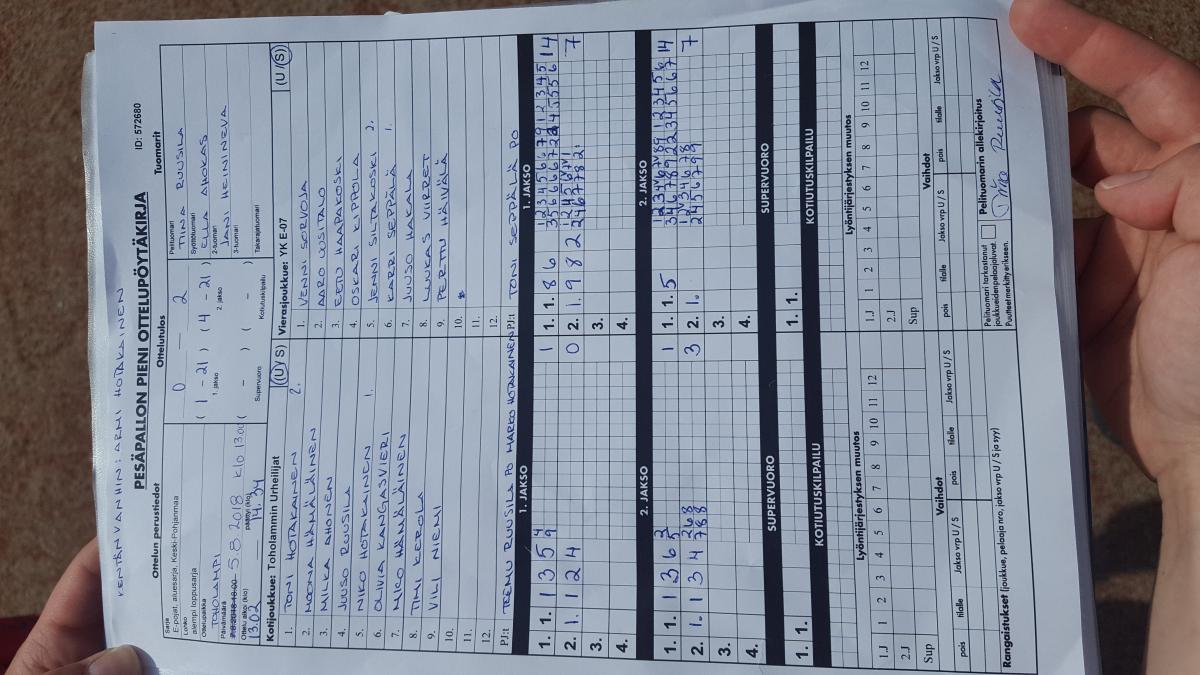 KENTÄNVANHIN: ARMI HOTAKAINEN
PESÄPALLON PIENI OTTELUPÖYTÄKIRJA
ID: 572680
Ottelun perustiedot
Sarja
E-pojat, aluesarja, Keski-Pohjanmaa
Lohko
alempi loppusarja
Ottelupaikka
TOHOLAMPI
Päivämäärä
7.8.2018 18.00 5.8.2018 klo 13.00
Ottelu alkoi (klo) päättyi (klo)
13.02 14.34
Ottelutulos
0 – 2
( 1 - 21 ) ( 4 - 21 )
1. jakso 2. jakso
( - ) ( - )
Supervuoro Kotiutuskilpailu
Tuomarit
Pelituomari
TIINA RUUSILA
Syöttötuomari
ELLA AHOKAS
2-tuomari
JANI HEININEVA
3-tuomari
Takarajatuomari
Kotijoukkue: Toholammin Urheilijat (U / S)
1. TONI HOTAKAINEN 2.
2. NOONA HÄMÄLÄINEN
3. MILKA AHONEN
4. JUUSO RUUSILA
5. NIKO HOTAKAINEN 1.
6. OLIVIA KANGASVIERI
7. MICO HÄMÄLÄINEN
8. TIMI KEROLA
9. VILI NIEMI
10.
11.
12.
PJ:t TEEMU RUUSILA PO MARKO HOTAKAINEN
Vierasjoukkue: YK E-07 (U / S)
1. VENNI SORVOJA
2. AARO UUSITALO
3. EETU HAAPAKOSKI
4. OSKARI KIPPOLA
5. JENNI SILTAKOSKI 2.
6. KARRI SEPPÄLÄ 1.
7. JUUSO HAKALA
8. LUUKAS VIIRRET
9. PERTTU HÄIVÄLÄ
10.
11.
12.
PJ:t TONI SEPPÄLÄ PO
1. JAKSO
1. JAKSO
1. 1. 1 3 5 4 9 1
2. 1. 1 2 4 0
3.
4.
1. 1. 8 6 14
2. 1. 9 8 2 7
3.
4.
2. JAKSO
2. JAKSO
1. 1. 1 3 6 3 5 1
2. 1. 1 3 4 3
3.
4.
1. 1. 5 14
2. 1. 7
3.
4.
SUPERVUORO
SUPERVUORO
1. 1.
1. 1.
KOTIUTUSKILPAILU
KOTIUTUSKILPAILU
Lyöntijärjestyksen muutos
Lyöntijärjestyksen muutos
1.J 1 2 3 4 5 6 7 8 9 10 11 12
2.J
Sup
1.J 1 2 3 4 5 6 7 8 9 10 11 12
2.J
Sup
Vaihdot
Vaihdot
pois tilalle Jakso vrp U / S pois tilalle Jakso vrp U / S
pois tilalle Jakso vrp U / S pois tilalle Jakso vrp U / S
Rangaistukset (joukkue, pelaaja nro, jakso vrp U / S ja syy)
Pelituomari tarkastanut
joukkueidenpelaajaluvat
Puutteet merkitty erikseen.
Pelituomarin allekirjoitus